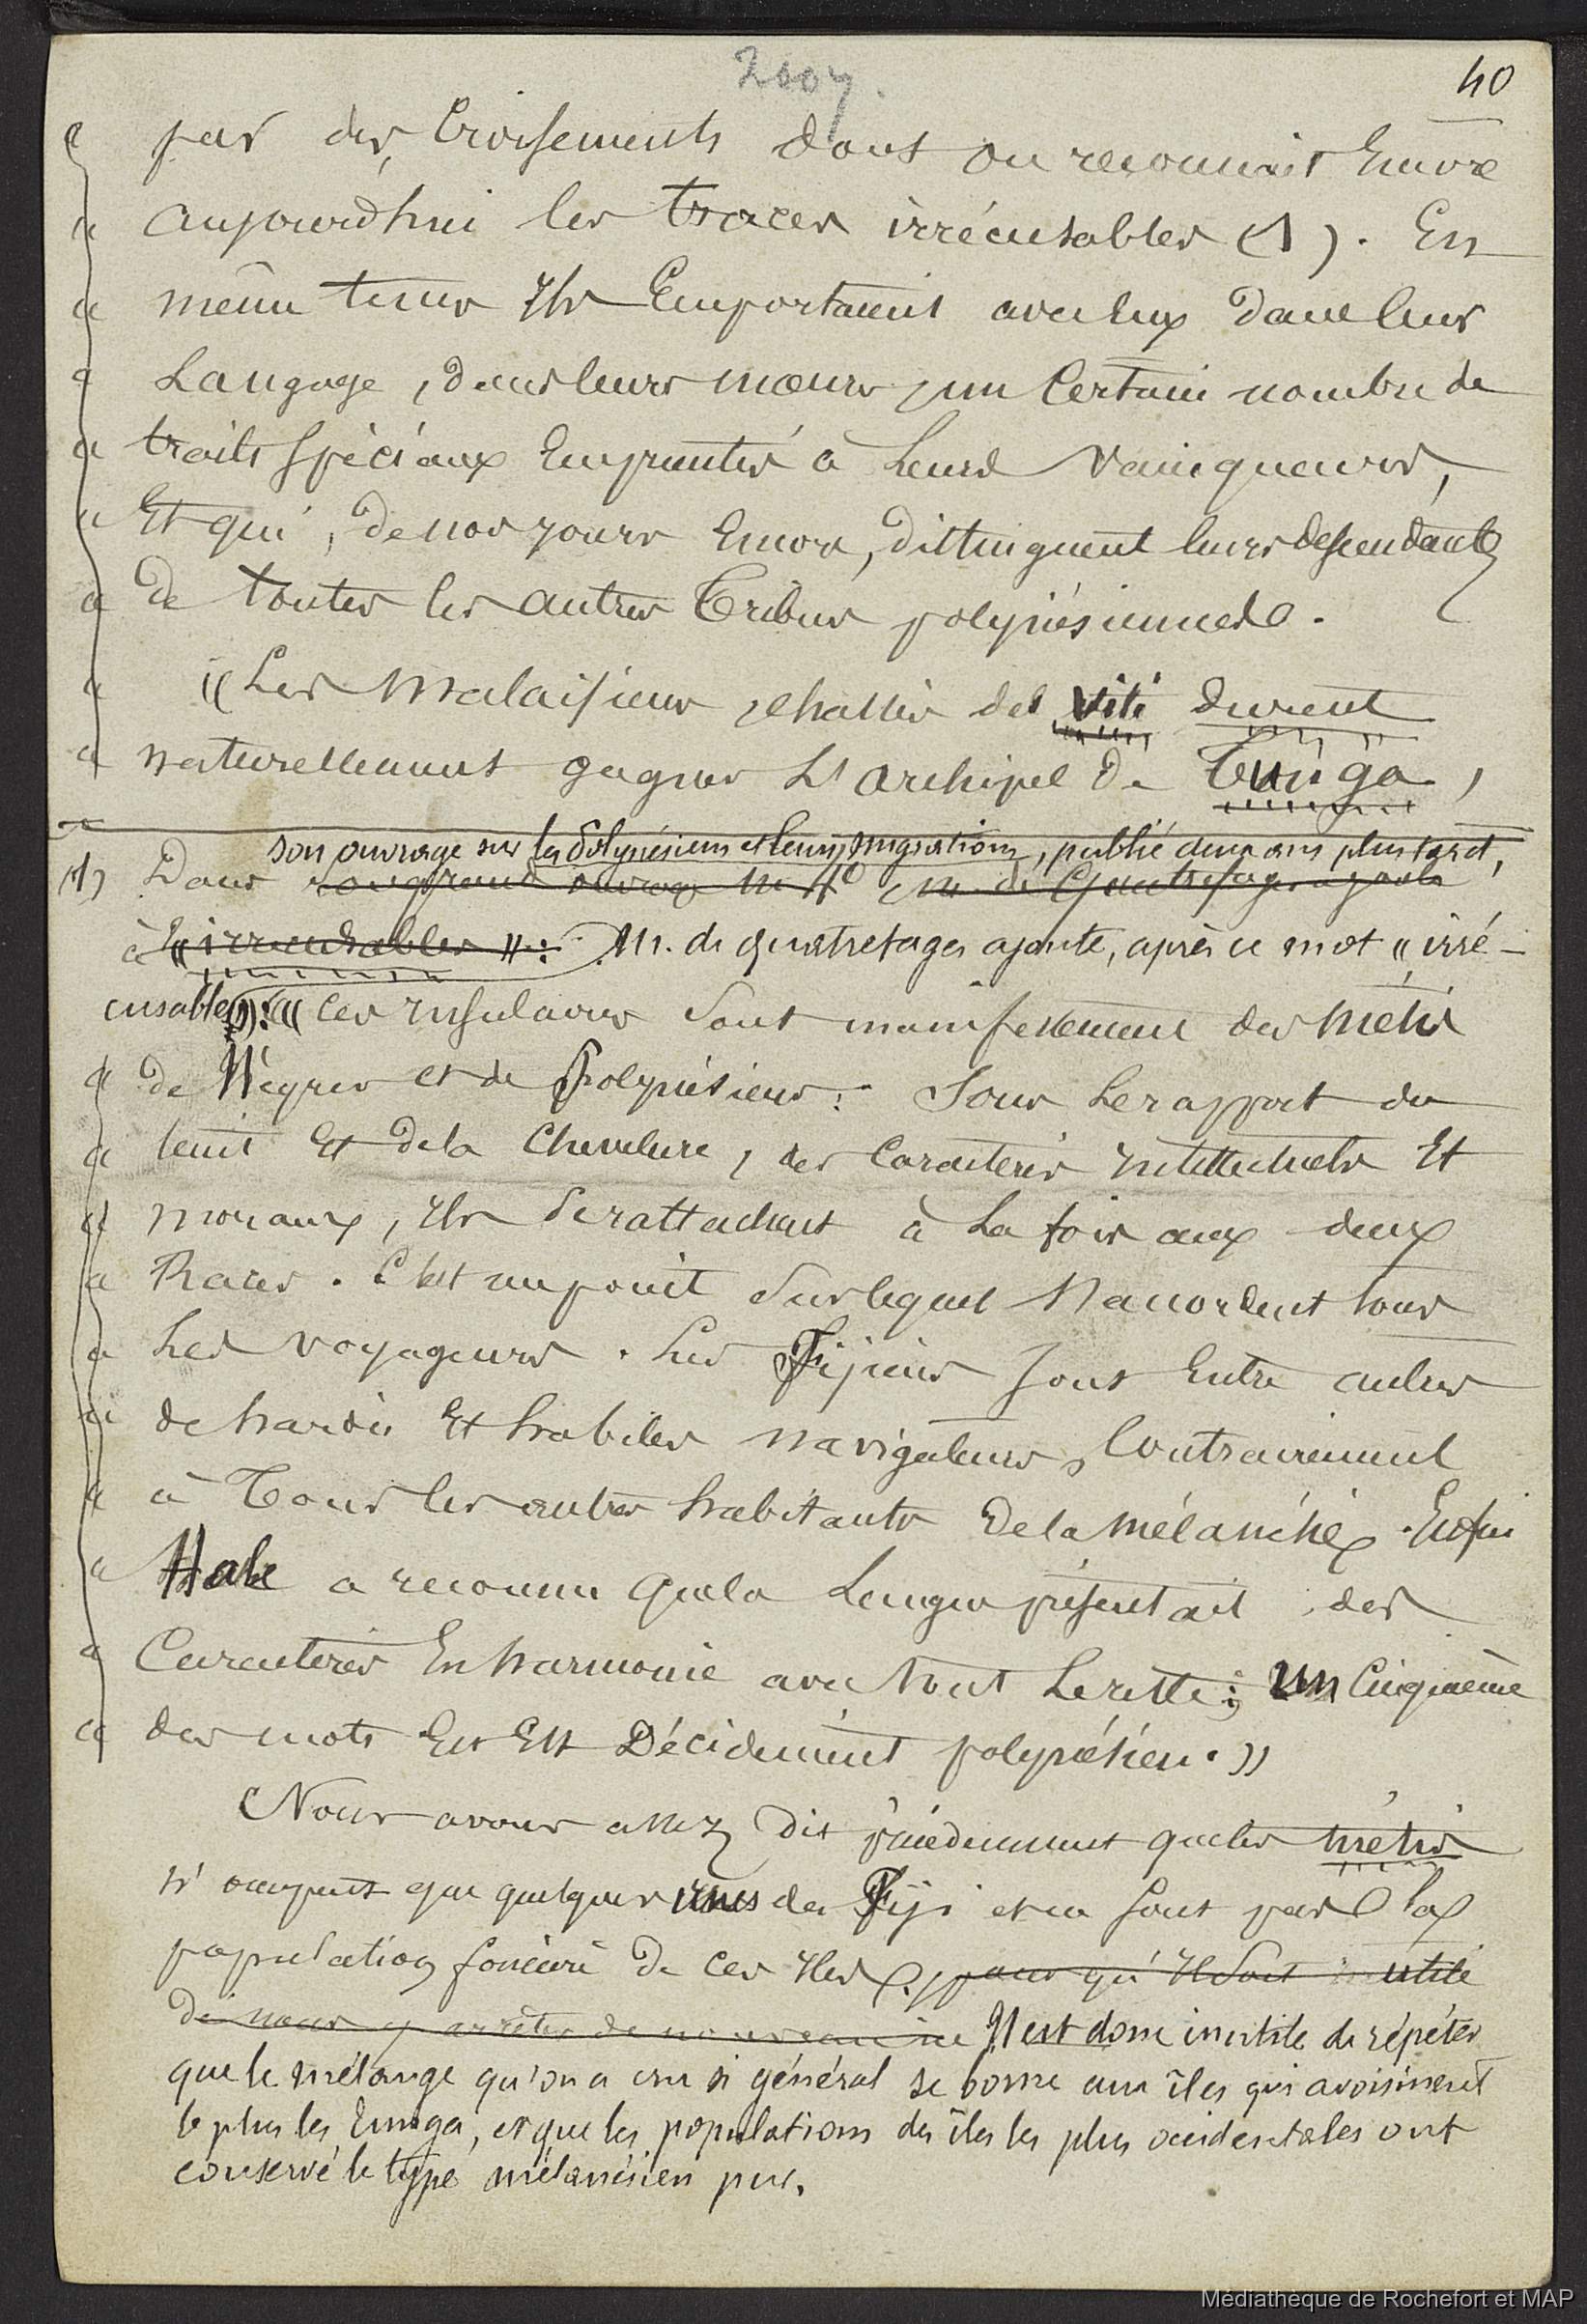 2007.
40
par des Croisements dont on reconnait Encore
aujourd'hui les traces irrécusables (1). En
même tems Ils Emportaient avec eux dans leur
Langage, dans leurs mœurs, un Certain nombre de
traits spéciaux Empruntés à Leurs Vainqueurs,
Et qui, de nos jours Encore, distinguent leurs descendants
de toutes les autres Tribus polynésiennes.
« Les Malaisiens, chassés des Viti durent
naturellement gagner L'archipel de Tunga,
son ouvrage sur les Polynésiens et leurs migrations, publié deux ans plus tard,
(1) Dans son grand ouvrage in 4° M. de Quatrefages ajoute
à « irrécusables » : M. de Quatrefages ajoute, après ce mot « irré-
cusables » : « Ces Insulaires sont manifestement des métis
de Nègres et de Polynésiens : Sous Le rapport du
teint Et de la Chevelure, des Caractères Intellectuels Et
moraux, Ils se rattachent à La fois aux deux
Races. C'est un point sur lequel s'accordent tous
Les voyageurs. Les Fijiens sont Entre autres
de hardis Et habiles navigateurs, Contrairement
à Tous les autres habitants de la Mélanésie. Enfin
Hale a reconnu que la Langue présentait des
Caractères En harmonie avec tout Le reste ; un Cinquième
des mots En Est Décidément polynésien. »
Nous avons assez dit précédemment que les métis
n'occupent que quelques unes des Fiji et ne sont pas la
population foncière de ces Iles, pour qu'Il soit utile
de nous y arrêter de nouveau ici Il est donc inutile de répéter
que le mélange qu'on a cru si général se borne aux îles qui avoisinent
le plus les Tunga, et que les populations des îles les plus occidentales ont
conservé le type mélanésien pur.
Médiathèque de Rochefort et MAP